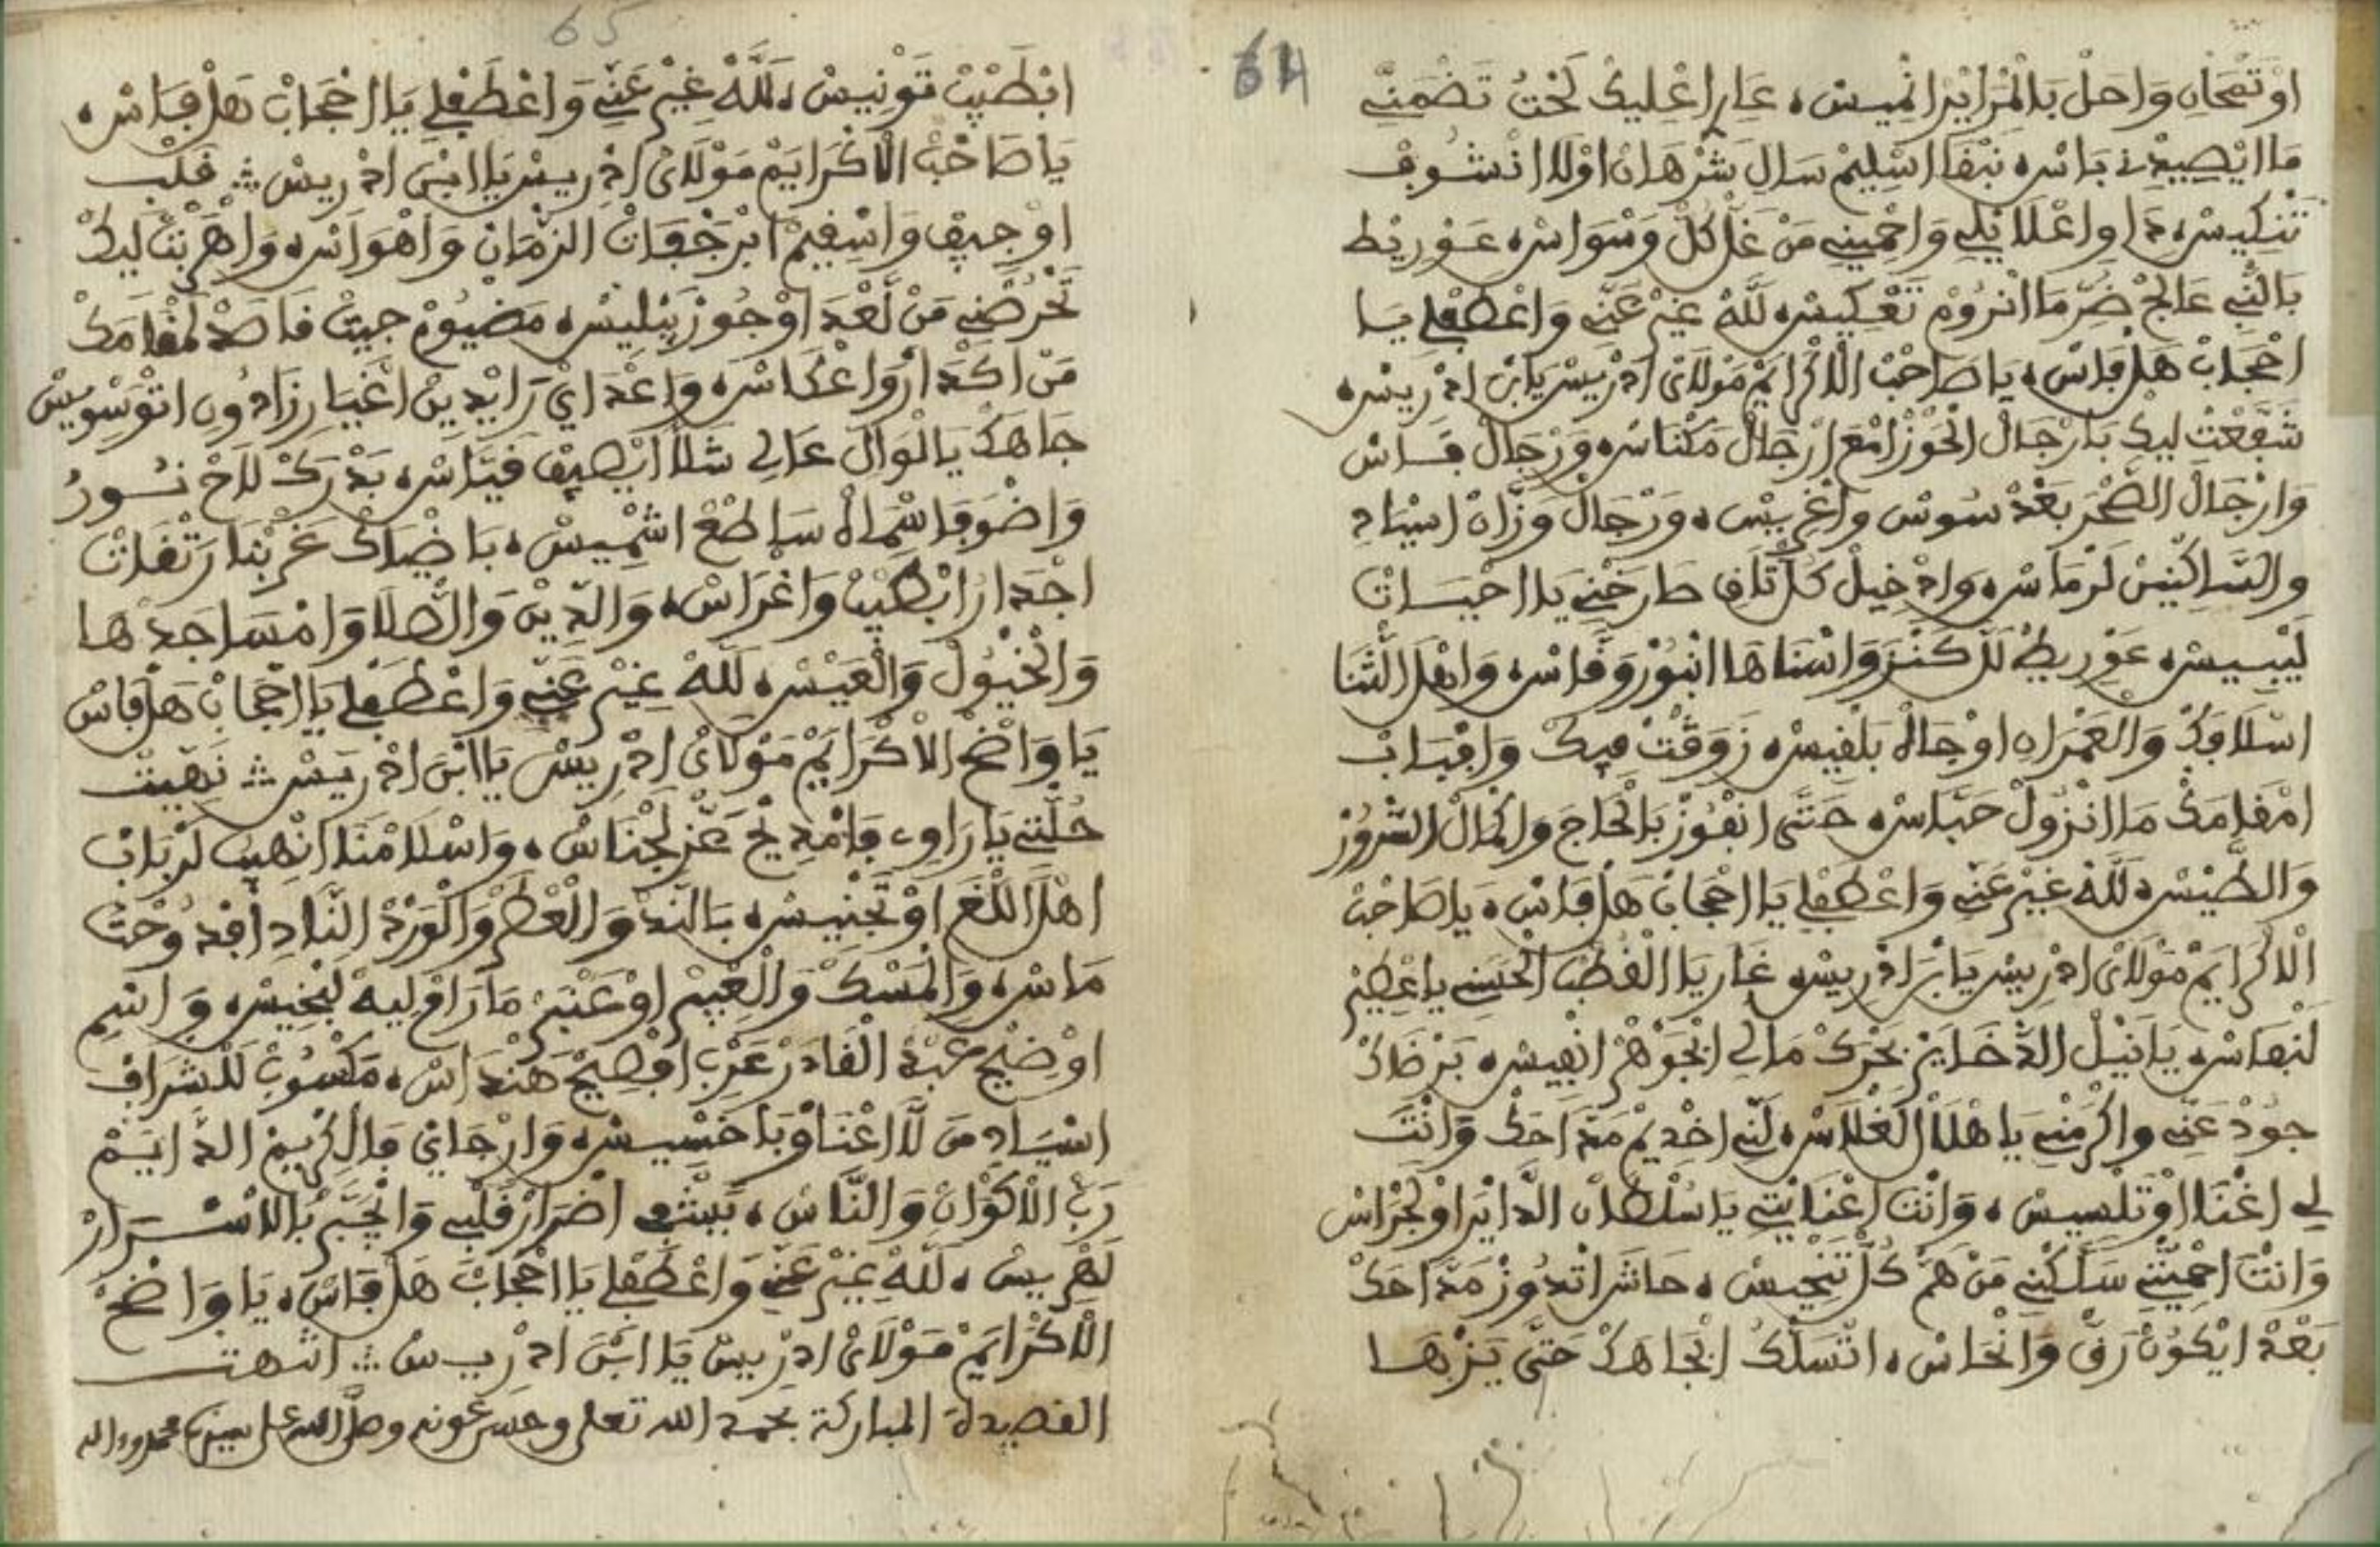 64
اوْتَمْحَانِ وَاحَلْ بَالْمْرَايْرْ انْمِيسْ، عَارِ اعْلِيكْ لَحْتُ تَضْمَنِّي
مَا ايْصِيبْنِي بَاسْ، نَبْقَا اسْلِيمْ سَالِي شَرْهَانْ اوْلَا انْشُوفْ
تَنْكِيسْ، وَاعْلَا نْكِي وَاحْمِينِي مَنْ غَلْ كُلْ وَسْوَاسْ، عَوْرِيطْ
بَالنّْبِي عَالَجْ ضَرِّ مَا انْرُومْ تَعْكِيسْ، لَلَّهْ غِيرْ عَنِّي وَاعْطَفْ لِي يَا
احْجَابْ هَلْ فَاسْ، يَا صَاحْبْ الْاكْرَايَمْ مَوْلَايْ ادْرِيسْ يَا بَنْ ادْرِيسْ،
شَفَّعْتْ لِيكْ بَارْجَالْ الْحَوْزْ امْعَ ارْجَالْ مَكْنَاسْ، وَرْجَالْ فَاسْ
وَارْجَالْ الصَّحْرَ بَعْدْ سُوسْ وَاغْرِيسْ، وَرْجَالْ وَزَّانْ اسْيَادِ
وَالسَّاكْنِينْ لَرْمَاسْ، وَادْخِيلْ كُلْ تَلْفِ طَارَحْنِي يَا احْبَسَاتْ
لَيْبِيسْ، عَوْرِيطْ لَلْ كَنْزْ وَاسْنَاهَا انْبُورْ وَفَّاسْ، وَاهْلْ الثَّنَا
اسْلَافَكْ وَالْعَمْرَاهِ اوْجَاهْ بَلْقِيسْ، زَوَّقْتْ فِيكْ وَافْبَابْ
امْقَامَكْ مَا انْزُولْ حَبَّاسْ، حَتَّى انْفُوزْ بَالْحَاجَ وَاكْمَالْ السّْرُورْ
وَالطَّيْسْ، لَلَّهْ غِيرْ عَنِّي وَاعْطَفْ لِي يَا احْجَابْ هَلْ فَاسْ، يَا صَاحْبْ
الْاكْرَايَمْ مَوْلَايْ ادْرِيسْ يَا بَنْ ادْرِيسْ، غَارْ يَا الْقُطْبْ الْحَسَنِي يَا عْطِيرْ
لَنْفَاسْ، يَا نِيلْ الدّْخَايَرْ بَحْرَكْ مَالِي ابْجَوْهَرْ انْفِيسْ، بَرْضَاكْ
جُودْ عَنِّي وَاكْرَمْنِي يَا هْلَالْ لَغْلَاسْ، لَنِّي اخْدِيمْ مَدَّاحَكْ وَانْتَ
لِي اغْنَا اوْتَلْبِيسْ، وَانْتَ اعْنَايْتِي يَا سُلْطَانْ الدَّايْرَ اوْلَحْرَاسْ
وَانْتَ احْمِيتْنِي سَلَّكْنِي مَنْ هَمّْ كُلْ تَنْحِيسْ، حَاشَ اتْدُوزْ مَدَّاحَكْ
بَعْدْ ايْكُونْ رَقّْ وَانْحَاسْ، اتْسَلْكُ ابْجَاهَكْ حَتَّى يَزْهَا
65
ابْطَيْبْ تَوْنِيسْ، لَلَّهْ غِيرْ عَنِّي وَاعْطَفْ لِي يَا احْجَابْ هَلْ فَاسْ،
يَا صَاحْبْ الْاكْرَايَمْ مَوْلَايْ ادْرِيسْ يَا ابْنْ ادْرِيسْ ؞ قَلْبِ
اوْجِيفْ وَاسْقِيمْ ابْرَجْفَاتْ الزّْمَانْ وَاهْوَاسْ، وَاهْرَبْتْ لِيكْ
تَحْرُضْنِي مَنْ لَعْدَ اوْجُوزْ يَبْلِيسْ، مَضْيُومْ جِيتْ قَاصَدْ لَمْقَامَكْ
مَنْ اكْدَارْ وَاعْكَاسْ، وَاعْدَايْ رَايْدِينْ اغْيَارْ زَادُونِ اتْوَسْوِيسْ
جَاهَكْ يَا لْوَالِ عَالِي شَلَّا ايْصِيفْ قَيَّاسْ، بَدْرَكْ لَاحْ نُورُ
وَاضْوَا فَاسْمَاهْ سَاطَعْ اشْمِيسْ، بَاضْيَاكْ غَرْبْنَا رَتْفَاتْ
اجْدَارْ ابْطَيْبْ وَاغْرَاسْ، وَالدِّينْ وَالصّْلَا وَامْسَاجَدْهَا
وَالْخْيُولْ وَالْعَيْسْ، لَلَّهْ غِيرْ عَنِّي وَاعْطَفْ لِي يَا احْجَابْ هَلْ فَاسْ
يَا وَاضَحْ الْاكْرَايَمْ مَوْلَايْ ادْرِيسْ يَا ابْنَ ادْرِيسْ ؞ نَهِيتْ
حُلّْتِي يَا رَاوِي فَامْدِيحْ عَزّْ لَجْنَاسْ، وَاسْلَامْنَا انْهِيبْ لَرْبَابْ
اهْلَ اللّْغَ اوْتَجْنِيسْ، بَالنَّدْ وَالْعْطَرْ وَالْوَرْدْ النَّادِ افْدُوحْتْ
مَاسْ، وَالْمَسْكْ وَالْعْبِيرْ اوْعَنْبَرْ مَا رَاقْ لِيهْ تَبْخِيسْ، وَاسْمِ
اوْضِيحْ عَبْدْ الْقَادَرْ عَرْبِ افْصِيحْ هَنْدَاسْ، مَكْسُوبْ لَلشّْرَافْ
اسْيَادِ مَنْ لَا اغْنَاوْ بَاخْسِيسْ، وَارْجَايْ فَالْكْرِيمْ الدَّايَمْ
رَبّْ الْاكْوَانْ وَالنَّاسْ، يَبْشِي اضْرَارْ قَلْبِي وَانْجَبَّرْ بَالَاسْرَارْ
لَهْرِيسْ، لَلَّهْ غِيرْ عَنِّي وَاعْطَفْ لِي يَا احْجَابْ هَلْ فَاسْ، يَا وَاضَحْ
الْاكْرَايَمْ مَوْلَايْ ادْرِيسْ يَا ابْنَ ادْرِيسْ ؞ انتهت
القصيدة المباركة بحمد الله تعلى وحسن عونه وصلى الله على سيدنا محمد وءاله